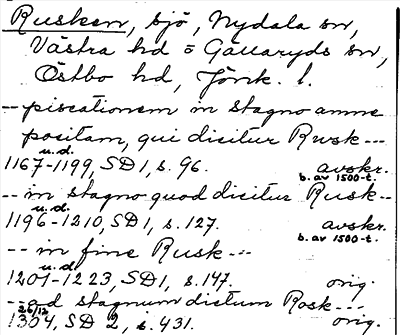 Rusken, sjö, Nydala sn,
Västra hd o Gällaryds sn,
Östbo hd, Jönk. l.
-- piscationem in stagno amne
positam, qui dicitur Rusk ---
u. d.
1167-1199, SD 1, s. 96. avskr.
b. av 1500-t.
-- in stagno quod dicitur Rusk--
u. d.
1196-1210, SD 1, s. 127. avskr.
b. av 1500-t.
-- in fine Rusk ---
u. d.
1201-1223, SD 1, s. 147. orig.
-- ad stagnum dictum Rosk ---
26/12
1304, SD 2, s. 431. orig.